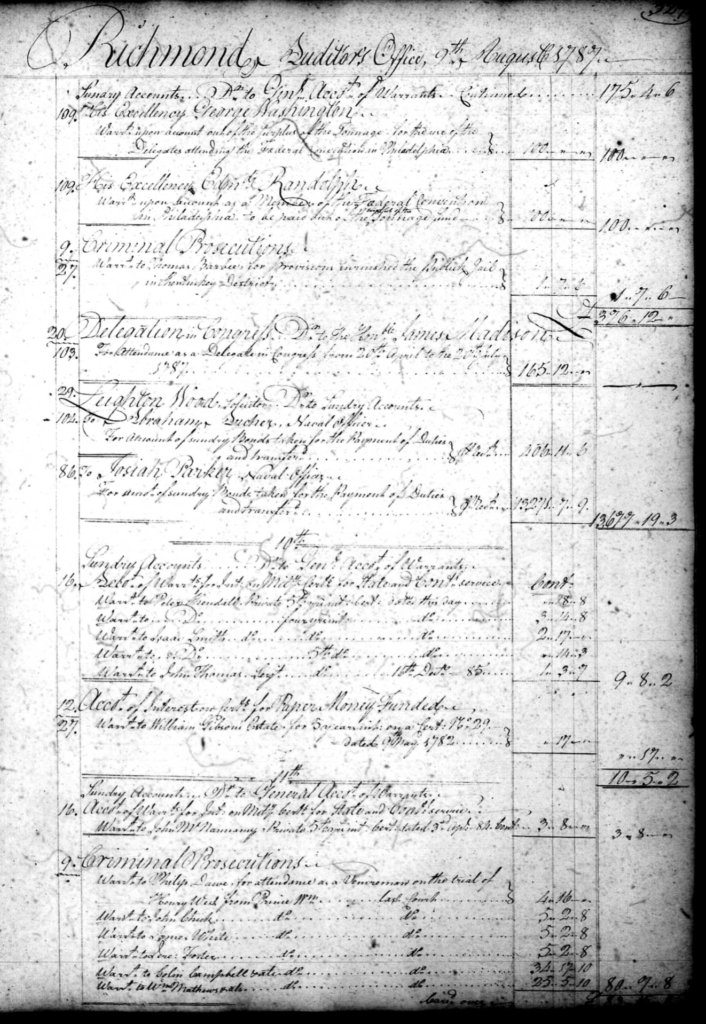 Richmond, Auditor's Office, 9th August 1787.
Sundry Accounts Dr. to Genl. Acct. of Warrants Continued 175 4 6
109. His Excellency George Washington
Warrt. upon account out of the surplus of the Tonnage for the use of the
Delegates attending the Federal Convention in Philadelphia 100 100
109. His Excellency Edmd. Randolph
Warrt. upon account as a Member of the Federal Convention
in Philadelphia to be paid out of the Tonnage fund 100 100
9. Criminal Prosecutions
27. Warrt. to Thomas Barbee for provisions furnished the Publick Jail
in Kentuckey District 1 7 6 1 7 6
376 12
20. Delegation in Congress Dr. to the Honble. James Madison
103. For Attendance as a Delegate in Congress from 20th April to the 20th July
1787 165 12
29. Leighton Wood Solicitor Dr. to Sundry Accounts
104. To Abraham Archer Naval Officer
For amount of sundry Bonds taken for the Payment of Duties
and transferd. 406 11 6
86. To Josiah Parker Naval Officer
For amot. of sundry Bonds taken for the Payment of Duties
and transferd. 13271 7 9
13677 19 3
10th
Sundry Accounts Dr. to Genl. Acct. of Warrants
16. Acct. of Warrts. for Int. on Mily. Certs. for State and Contl. service Cont.
Warrt. to Peter Private 5th Cert. dated this day 18 8
Warrt. to Do. four do. 3 4 8
Warrt. to Isaac Smith do. do. do. 2 17
Warrt. to Do. 5th do. do. 14 3
Warrt. to John Thomas Sergt. do. 18th Decr. 85 1 3 7
9 8 2
12. Acct. of Interest on Certs. for Paper Money Funded
27. Warrt. to William Gibsons Estate for 5 years int. on a Cert. No. 29
dated May 1782 17
17
10 5 2
11th
Sundry Accounts Dr. to General Acct. of Warrants
16. Acct. of Warrts. for Int. on Mily. Certs. for State and Contl. service
Warrt. to John McNannamy Private 5th Cert. dated 3d Apl. 84 Cont. 3 8 3 8
9. Criminal Prosecutions
Warrt. to Philip Dawe for attendance as a Venireman on the trial of
Henry West from Prince Wm. last Court 4 16
Warrt. to John Chick do. do. 5 2 8
Warrt. to White do. do. 5 2 8
Warrt. to Foster do. do. 5 2 8
Warrt. to Colin Campbell do. do. 34 17 10
Warrt. to Wm. Mathews do. do. 25 5 10 80 7 8
Card. over